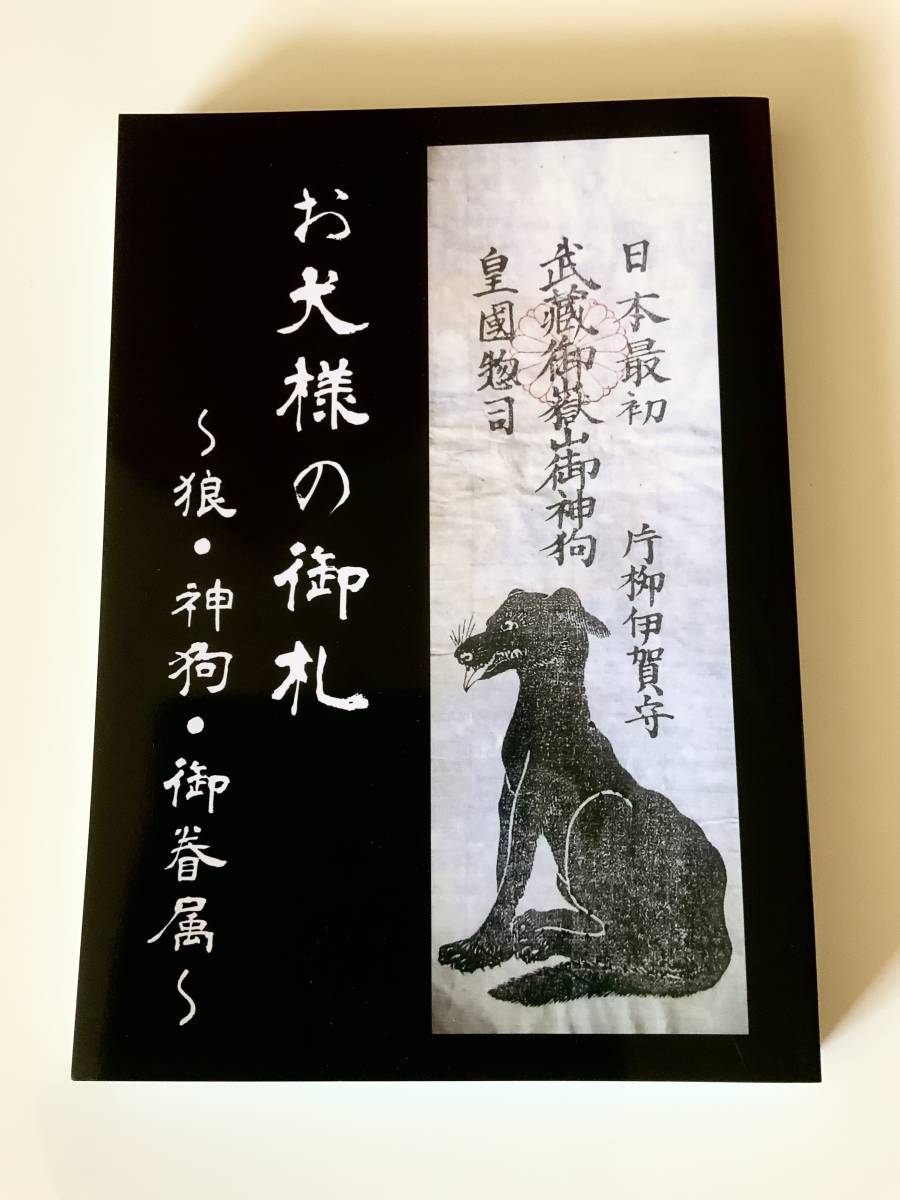 お犬様の御札
～狼・神狗・御眷属～
日本最初
片柳伊賀守
武藏御嶽山御神狗
皇國惣司